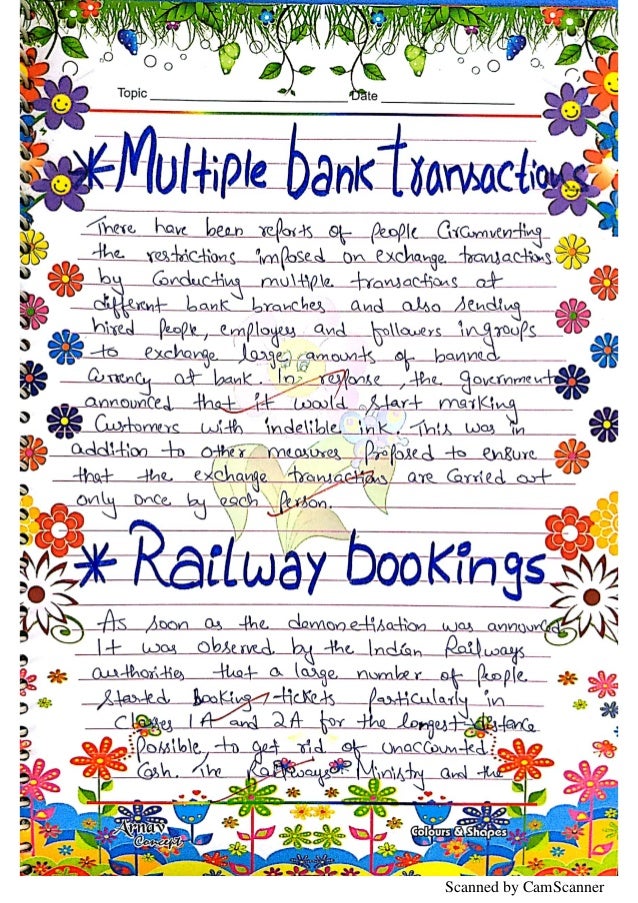 Topic Date
* Multiple bank transactions
There have been reports of people Circumventing
the restrictions imposed on exchange transactions
by Conducting multiple transactions at
different bank branches and also sending
hired people, employees and followers in groups
to exchange large amounts of banned
Currency at bank. In response, the government
announced that it would start marking
Customers with indelible ink. This was in
addition to other measures proposed to ensure
that the exchange transactions are Carried out
only once by each person.
* Railway bookings
As soon as the demonetisation was announced
It was observed by the Indian Railways
authorities that a large number of people
started booking tickets particularly in
Classes 1A and 2A for the longest distance
possible, to get rid of unaccounted
Cash. The Railways Ministry and the
Arnav Concept
Colours & Shapes
Scanned by CamScanner